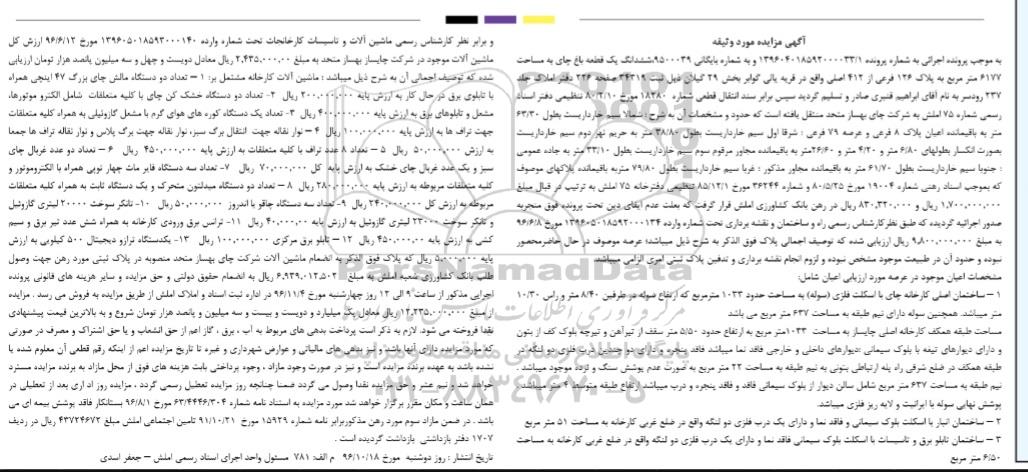 آگهی مزایده مورد وثیقه
به موجب پرونده اجرائی به شماره پرونده ۱۳۹۶۰۴۰۱۸۵۹۲۰۰۰۰۳۳/۱ و به شماره بایگانی ۹۵۰۰۰۳۹ ششدانگ یک قطعه باغ چای به مساحت
۶۱۷۷ متر مربع به پلاک ۱۲۶ فرعی از ۴۱۲ اصلی واقع در قریه بالی گوابر بخش ۲۹ گیلان ذیل ثبت ۳۴۳۱۹ صفحه ۲۲۶ دفتر املاک جلد
۲۳۷ رودسر به نام آقای ابراهیم قنبری صادر و تسلیم گردید سپس برابر سند انتقال قطعی شماره ۱۸۲۸۰ مورخ ۸۰/۲/۱۰ تنظیمی دفتر اسناد
رسمی شماره ۷۵ املش به شرکت چای بهساز متحد منتقل یافته است که حدود و مشخصات آن به شرح : شمالا سیم خارداریست بطول ۶۳/۳۰
متر به باقیمانده اعیان پلاک ۸ فرعی و عرصه ۷۹ فرعی : شرقا اول سیم خارداریست بطول ۳۸/۸۰ متر به حریم نهر دوم سیم خارداریست
بصورت انگسار بطولهای ۶/۸۰ متر و ۴/۲۰ متر و ۲۶/۶۰متر به باقیمانده مجاور مرقوم سوم سیم خارداریست بطول ۳۳/۱۰ متر به جاده عمومی
: جنوبا سیم خارداریست بطول ۶۱/۷۰ متر به باقیمانده مجاور مذکور : غربا سیم خارداریست بطول ۷۹/۸۰ متربه باقیمانده پلاکهای موصوف
که بموجب اسناد رهنی شماره ۱۹۰۰۴ مورخ ۸۰/۵/۲۵ و شماره ۳۶۲۴۴ مورخ ۸۵/۱۲/۱ تنظیمی دفترخانه ۷۵ املش به ترتیب در قبال مبلغ
۱,۷۰۰,۰۰۰,۰۰۰ و ۸۳۰,۳۲۰,۰۰۰ ریال در رهن بانک کشاورزی املش قرار گرفت که بعلت عدم ایفای دین تحت پرونده فوق منجربه
صدور اجرائیه گردیده که طبق نظرکارشناس رسمی راه و ساختمان و نقشه برداری تحت شماره وارده ۱۳۹۶۰۵۰۱۸۵۹۲۰۰۰۱۳۴ مورخ ۹۶/۶/۸
به مبلغ ۹,۸۰۰,۰۰۰,۰۰۰ ریال ارزیابی شده که توصیف اجمالی پلاک فوق الذکر به شرح ذیل میباشد: عرصه موصوف در حال حاضرمحصور
نبوده و حدود آن در طبیعت موجود مشخص نبوده و لزوم انجام نقشه برداری و تدفین پلاک ثبتی امری الزامی میباشد.
مشخصات اعیان موجود در عرصه مورد ارزیابی اعیان شامل:
۱ – ساختمان اصلی کارخانه چای با اسکلت فلزی (سوله) به مساحت حدود ۱۰۳۳ مترمربع که ارتفاع سوله در طرفین ۸/۴۰ متر و راس ۱۰/۳۰
متر میباشد. همچنین سوله دارای نیم طبقه به مساحت ۶۳۷ متر مربع می باشد
مساحت طبقه همکف کارخانه اصلی چایساز به مساحت ۱۰۳۳متر مربع به ارتفاع حدود ۵/۵۰ متر سقف از تیرآهن و تیرچه بلوک کف از بتون
و دارای دیوارهای تیغه با بلوک سیمانی :دیوارهای داخلی و خارجی فاقد نما میباشد فاقد پنجره و دارای دو چندین درب فلزی دو لنگه در
طبقه همکف در ضلع شرقی راه پله ارتباطی بتونی به نیم طبقه به مساحت ۲۲ متر مربع به صورت عدم پوشش سنگ و نرده موجود میباشد.
نیم طبقه به مساحت ۶۳۷ متر مربع شامل سالن دیوار از بلوک سیمانی فاقد و فاقد پنجره و درب میباشد ارتفاع طبقه متوسط ۴ متر میباشد.
پوشش نهایی سوله با ایرانیت و لایه ریز فلزی میباشد.
۲ – ساختمان انبار با اسکلت بلوک سیمانی و فاقد نما و دارای یک درب فلزی دو لنگه واقع در ضلع غربی کارخانه به مساحت ۵۱ متر مربع
۳ – ساختمان تابلو برق و تاسیسات با اسکلت بلوک سیمانی فاقد نما و دارای یک درب فلزی دو لنگه واقع در ضلع غربی کارخانه به مساحت
۶/۵۰ متر مربع
و برابر نظر کارشناس رسمی ماشین آلات و تاسیسات کارخانجات تحت شماره وارده ۱۳۹۶۰۵۰۱۸۵۹۳۰۰۰۱۴۰ مورخ ۹۶/۶/۱۲ ارزش کل
ماشین آلات موجود در شرکت چایساز بهساز متحد به مبلغ ۲,۴۳۵,۰۰۰,۰۰ ریال معادل دویست و چهل و سه میلیون پانصد هزار تومان ارزیابی
شده که توصیف اجمالی آن به شرح ذیل میباشد : ماشین آلات کارخانه مشتمل بر: ۱ – تعداد دو دستگاه مالش چای بزرگ ۴۷ اینچی همراه
با تابلوی برق در حال کار به ارزش پایه ۲۰۰,۰۰۰,۰۰۰ ریال ۲- تعداد دو دستگاه خشک کن چای با کلیه متعلقات شامل الکترو موتورها،
مشعل و تابلوهای برق به ارزش پایه ۴۰۰,۰۰۰,۰۰۰ ریال ۳- تعداد یک دستگاه کوره های هوای گرم با مشعل گازوئیلی به همراه کلیه متعلقات
جهت تراف ها به ارزش پایه ۱۰۰,۰۰۰,۰۰۰ ریال ۴ – نوار نقاله جهت انتقال برگ سبز، نوار نقاله جهت برگ پلاس و نوار نقاله تراف ها جمعا
به ارزش ۵۰,۰۰۰,۰۰۰ ریال ۵ – تعداد ۸ عدد تراف با کلیه متعلقات به ارزش پایه ۴۵۰,۰۰۰,۰۰۰ ریال ۶ – تعداد دو عدد غربال چای
سبز و یک عدد غربال چای خشک به ارزش پایه کل ۷۰,۰۰۰,۰۰۰ ریال ۷- تعداد سه دستگاه فایر مات چهار نوپی همراه با الکتروموتور و
کلیه متعلقات مربوطه به ارزش پایه ۲۸۰,۰۰۰,۰۰۰ ریال ۸ – تعداد دو دستگاه میدلتون متحرک و یک دستگاه ثابت به همراه کلیه متعلقات
مربوطه به ارزش کل ۲۴۰,۰۰۰,۰۰۰ ریال ۹- تعداد سه دستگاه چاقو با اندروز ۵۰,۰۰۰,۰۰۰ ریال ۱۰- تانکر سوخت ۲۰۰۰۰ لیتری گازوئیل
و تانکر سوخت ۲۳۰۰۰ لیتری گازوئیل به ارزش پایه ۴۰,۰۰۰,۰۰ ریال ۱۱- ترانس برق ورودی کارخانه به همراه شش عدد تیر برق و سیم
کشی به ارزش پایه ۴۵۰,۰۰۰,۰۰ ریال ۱۲ – تابلو برق مرکزی ۱۰۰,۰۰۰,۰۰۰ ریال ۱۳- یکدستگاه ترازو دیجیتال ۵۰۰ کیلویی به ارزش
پایه ۵,۰۰۰,۰۰۰ ریال که پلاک فوق الذکر به انضمام ماشین آلات شرکت چای بهساز متحد منصوبه در پلاک ثبتی مورد رهن جهت وصول
طلب بانک کشاورزی شعبه املش به مبلغ ۶,۹۳۹,۰۱۲,۵۰۳ ریال به انضمام حقوق دولتی و حق مزایده و سایر هزینه های قانونی پرونده
اجرایی مذکور از ساعت ۹ الی ۱۲ روز چهارشنبه مورخ ۹۶/۱۱/۴ در اداره ثبت اسناد و املاک املش از طریق مزایده به فروش می رسد . مزایده
از مبلغ ۱۲,۲۳۵,۰۰۰,۰۰۰ ریال معادل یک میلیارد و دویست و بیست و سه میلیون و پانصد هزار تومان شروع و به بالاترین قیمت پیشنهادی
نقدا فروخته می شود. لازم به ذکر است پرداخت بدهی های مربوطه به آب ، برق ، گاز اعم از حق انشعاب و یا حق اشتراک و مصرف در صورتی
که مورد مزایده دارای آنها باشد و نیز بدهی های مالیاتی و عوارض شهرداری و غیره تا تاریخ مزایده اعم از اینکه رقم قطعی آن معلوم شده یا
نشده باشد به عهده برنده مزایده است و نیز در صورت وجود مازاد ، وجوه پرداختی بابت هزینه های فوق از محل مازاد به برنده مزایده مسترد
خواهد شد و نیم عشر و حق مزایده نقدا وصول می گردد ضمنا چنانچه روز مزایده تعطیل رسمی گردد ، مزایده روز اداری بعد از تعطیلی در
همان ساعت و مکان مقرر برگزار خواهد شد مورد مزایده به استناد نامه شماره ۶۳/۴۴۴۶/۳۰۴ مورخ ۹۶/۸/۱ بستانکار فاقد پوشش بیمه ای می
باشد . در ضمن مازاد سوم مورد رهن مذکوربرابر نامه شماره ۱۵۹۲۹ مورخ ۹۱/۱۰/۲۱ تامین اجتماعی املش مبلغ ۴۳۷۲۴۶۷۲ ریال در ردیف
۱۷۰۷ دفتر بازداشتی بازداشت گردیده است .
تاریخ انتشار : روز دوشنبه مورخ ۹۶/۱۰/۱۸ م الف: ۷۸۱ مسئول واحد اجرای اسناد رسمی املش – جعفر اسدی